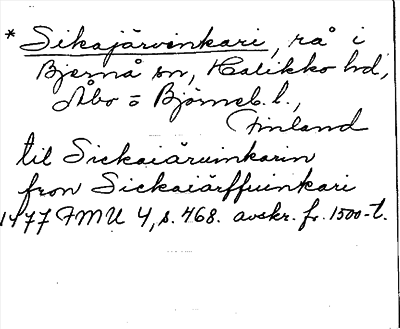 * Sikajärvinkari, rå i
Bjernå sn, Halikko hd,
Åbo = Björneb. l.,
Finland
til Sickaiäruinkarin
fron Sickaiärffuinkari
1477 FMU 4, s. 468. avskr. fr. 1500-t.